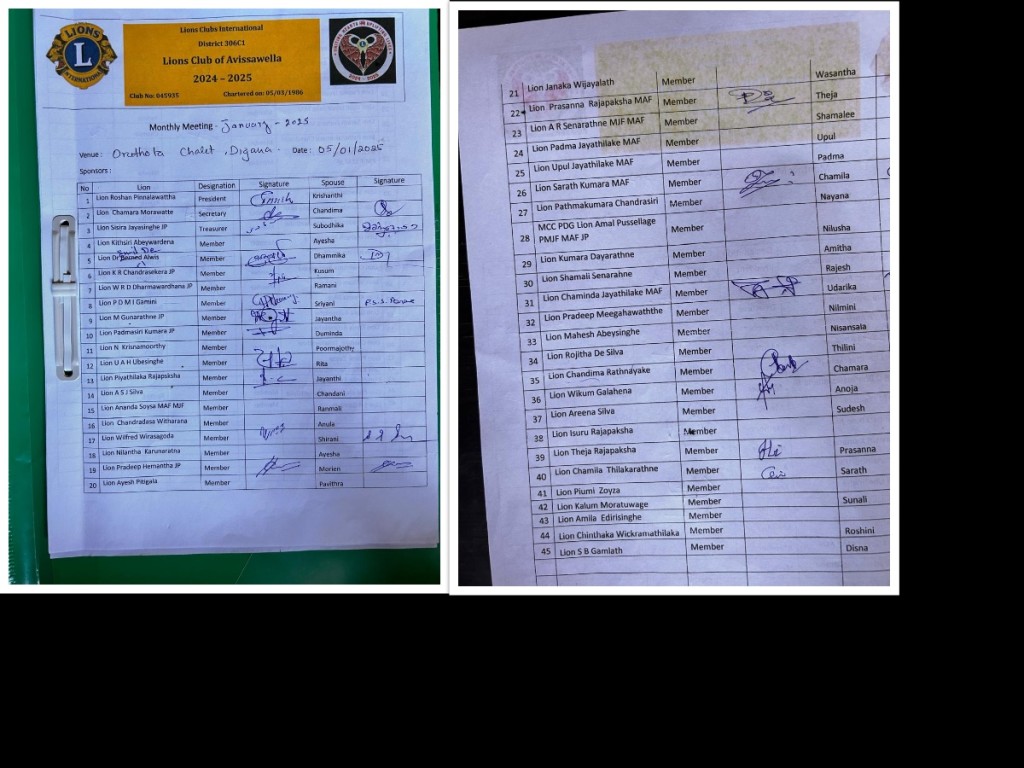 LIONS
L
INTERNATIONAL
Lions Clubs International
District 306C1
Lions Club of Avissawella
2024 – 2025
Club No: 045935 Chartered on: 05/03/1986
2024 - 2025
Monthly Meeting - January - 2025
Venue : Orethota Chalet, Digana. Date : 05/01/2025
Sponsors :
No Lion Designation Signature Spouse Signature
1 Lion Roshan Pinnalawattha President Krishanthi
2 Lion Chamara Morawatte Secretary Chandima
3 Lion Sisira Jayasinghe JP Treasurer Subodhika
4 Lion Kithsiri Abeywardena Member Ayesha
5 Lion Dr Alwis Member Dhammika
6 Lion K R Chandrasekera JP Member Kusum
7 Lion W R D Dharmawardhana JP Member Ramani
8 Lion P D M I Gamini Member Sriyani
9 Lion M Gunarathne JP Member Jayantha
10 Lion Padmasiri Kumara JP Member Duminda
11 Lion N Krisnamoorthy Member Poornajothy
12 Lion U A H Ubesinghe Member Rita
13 Lion Piyathilaka Rajapaksha Member Jayanthi
14 Lion A S J Silva Member Chandani
15 Lion Ananda Soysa MAF MJF Member Ranmali
16 Lion Chandradasa Witharana Member Anula
17 Lion Wilfred Wirasagoda Member Shirani
18 Lion Nilantha Karunaratna Member Ayesha
19 Lion Pradeep Hemantha JP Member Morien
20 Lion Ayesh Pitigala Member Pavithra
21 Lion Janaka Wijayalath Member Wasantha
22 Lion Prasanna Rajapaksha MAF Member Theja
23 Lion A R Senarathne MJF MAF Member Shamalee
24 Lion Padma Jayathilake MAF Member Upul
25 Lion Upul Jayathilake MAF Member Padma
26 Lion Sarath Kumara MAF Member Chamila
27 Lion Pathmakumara Chandrasiri Member Nayana
28 MCC PDG Lion Amal Pussellage
PMJF MAF JP Member Nilusha
29 Lion Kumara Dayarathne Member Amitha
30 Lion Shamali Senarahne Member Rajesh
31 Lion Chaminda Jayathilake MAF Member Udarika
32 Lion Pradeep Meegahawaththe Member Nilmini
33 Lion Mahesh Abeysinghe Member Nisansala
34 Lion Rojitha De Silva Member Thilini
35 Lion Chandima Rathnayake Member Chamara
36 Lion Wikum Galahena Member Anoja
37 Lion Areena Silva Member Sudesh
38 Lion Isuru Rajapaksha Member
39 Lion Theja Rajapaksha Member Prasanna
40 Lion Chamila Thilakarathne Member Sarath
41 Lion Piumi Zoyza Member
42 Lion Kalum Moratuwage Member Sunali
43 Lion Amila Edirisinghe Member
44 Lion Chinthaka Wickramathilaka Member Roshini
45 Lion S B Gamlath Member Disna